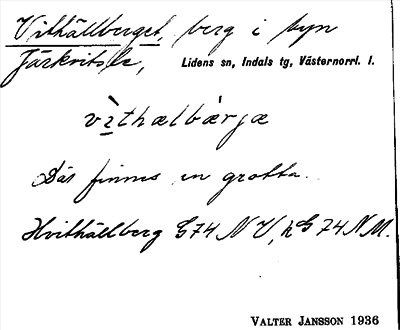 Vithällberget, berg i byn
Järkvitsle, Lidens sn, Indals tg, Västernorrl. l.
vìthælbǽrjæ
Där finnes en grotta.
Hvithällberg G74 NV, h G74 NM.
VALTER JANSSON 1936